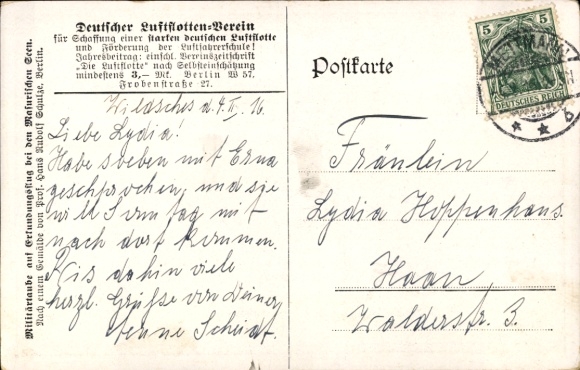 Deutscher Luftflotten-Verein
für Schaffung einer starken deutschen Luftflotte
und Förderung der Luftfahrerschule!
Jahresbeitrag: einschl. Vereinszeitschrift
"Die Luftflotte" nach Selbsteinschätzung
mindestens 3,— Mk. Berlin W 57.
Frobenstraße 27.
d. 4. II. 16.
Liebe Lydia!
Habe soeben mit Erna
gesprochen, und sie
will Sonntag mit
nach dort kommen.
Bis dahin viele
herzl. Grüße von Deiner
Scheidt.
Militärtaube auf Erkundungsflug bei den Masurischen Seen.
Nach einem Gemälde von Prof. Hans Rudolf Schulze, Berlin.
Postkarte
5 5
DEUTSCHES REICH
METTMANN
* * b
Fräulein
Lydia Hoppenhaus
Haan
Walderstr. 3.